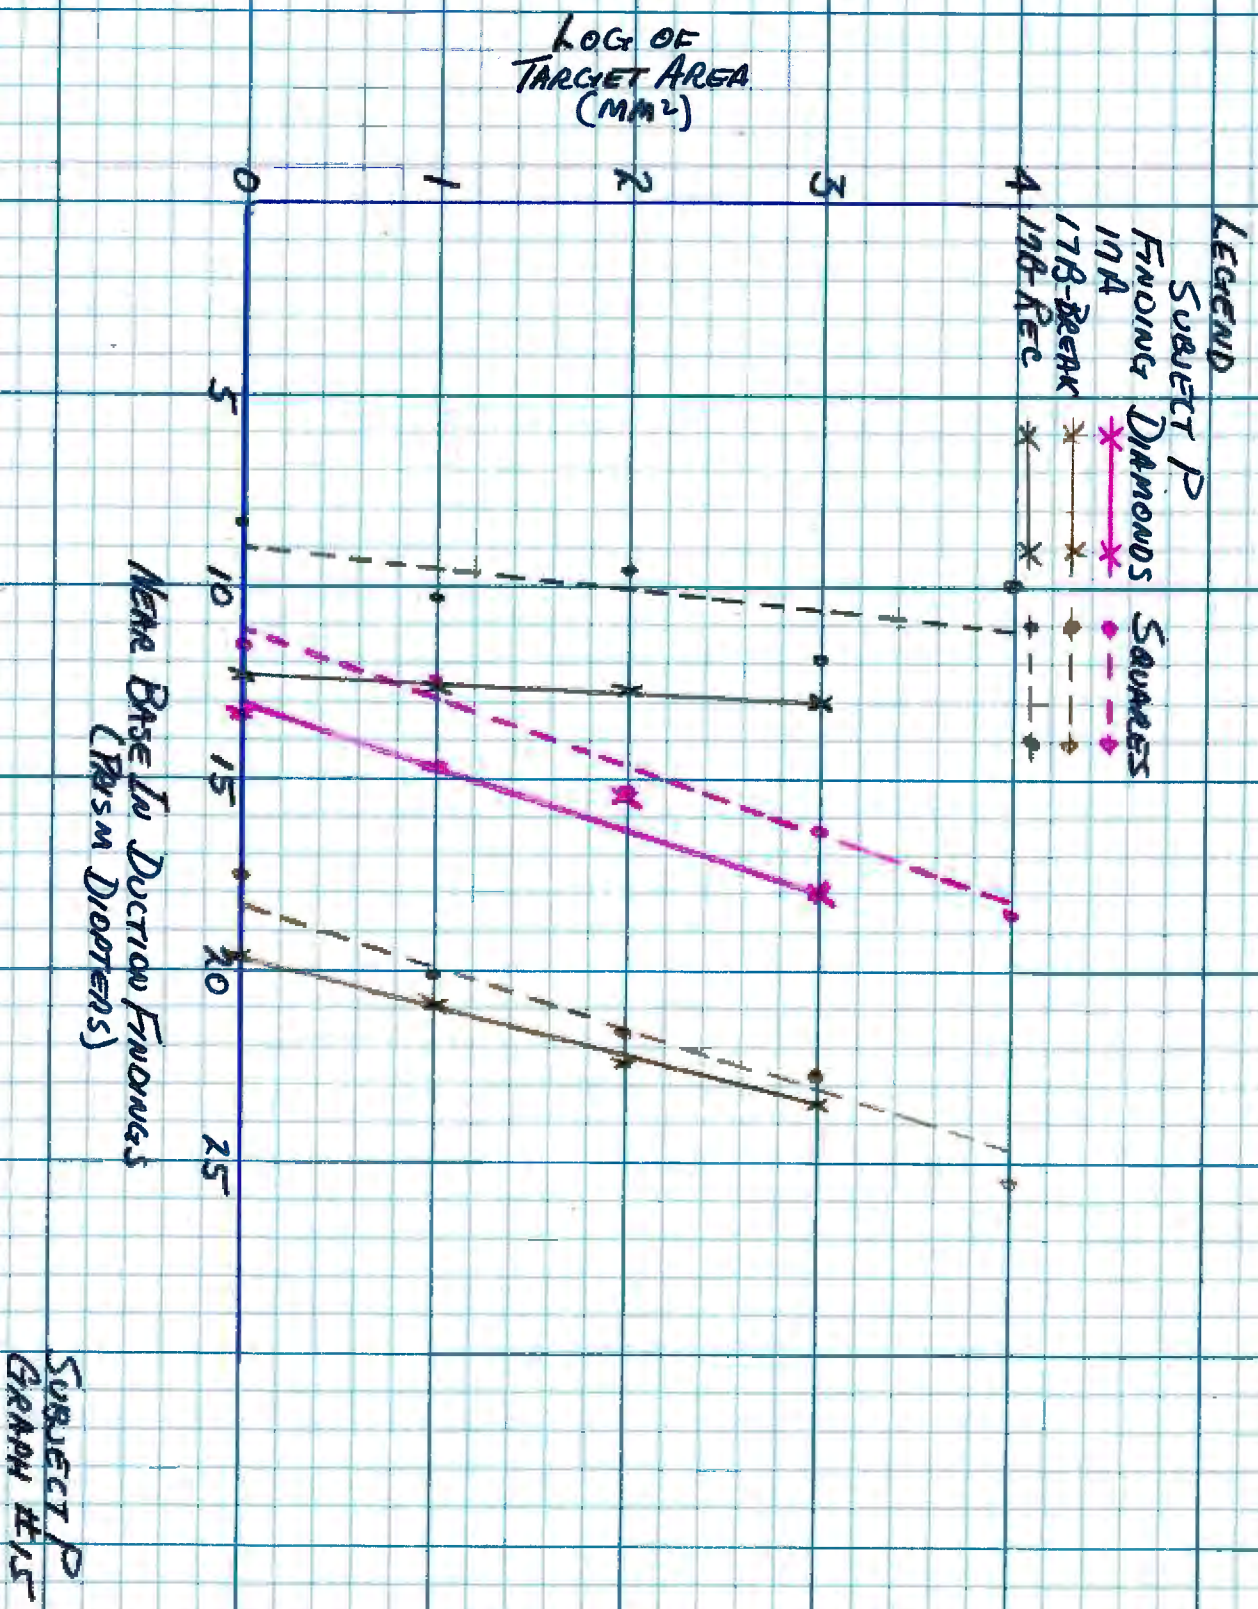 LOG OF
TARGET AREA
(MM2)
LEGEND
SUBJECT P
FINDING DIAMONDS SQUARES
17A
17B-BREAK
17B-REC
4
3
2
1
0
5
10
15
20
25
NEAR BASE IN DUCTION FINDINGS
(PRISM DIOPTERS)
SUBJECT P
GRAPH #15